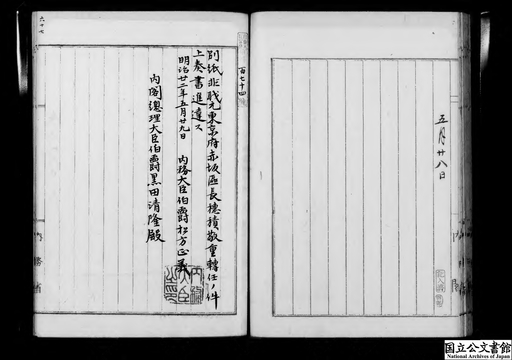 五月廿八日
百七十四
別紙非職元東京府赤坂區長穂積敬重轉任ノ件
上奏書進達ス
明治廿二年五月廿九日
内務大臣伯爵松方正義
内務大臣之印
内閣總理大臣伯爵黒田清隆殿
六十七
内務省
国立公文書館
National Archives of Japan